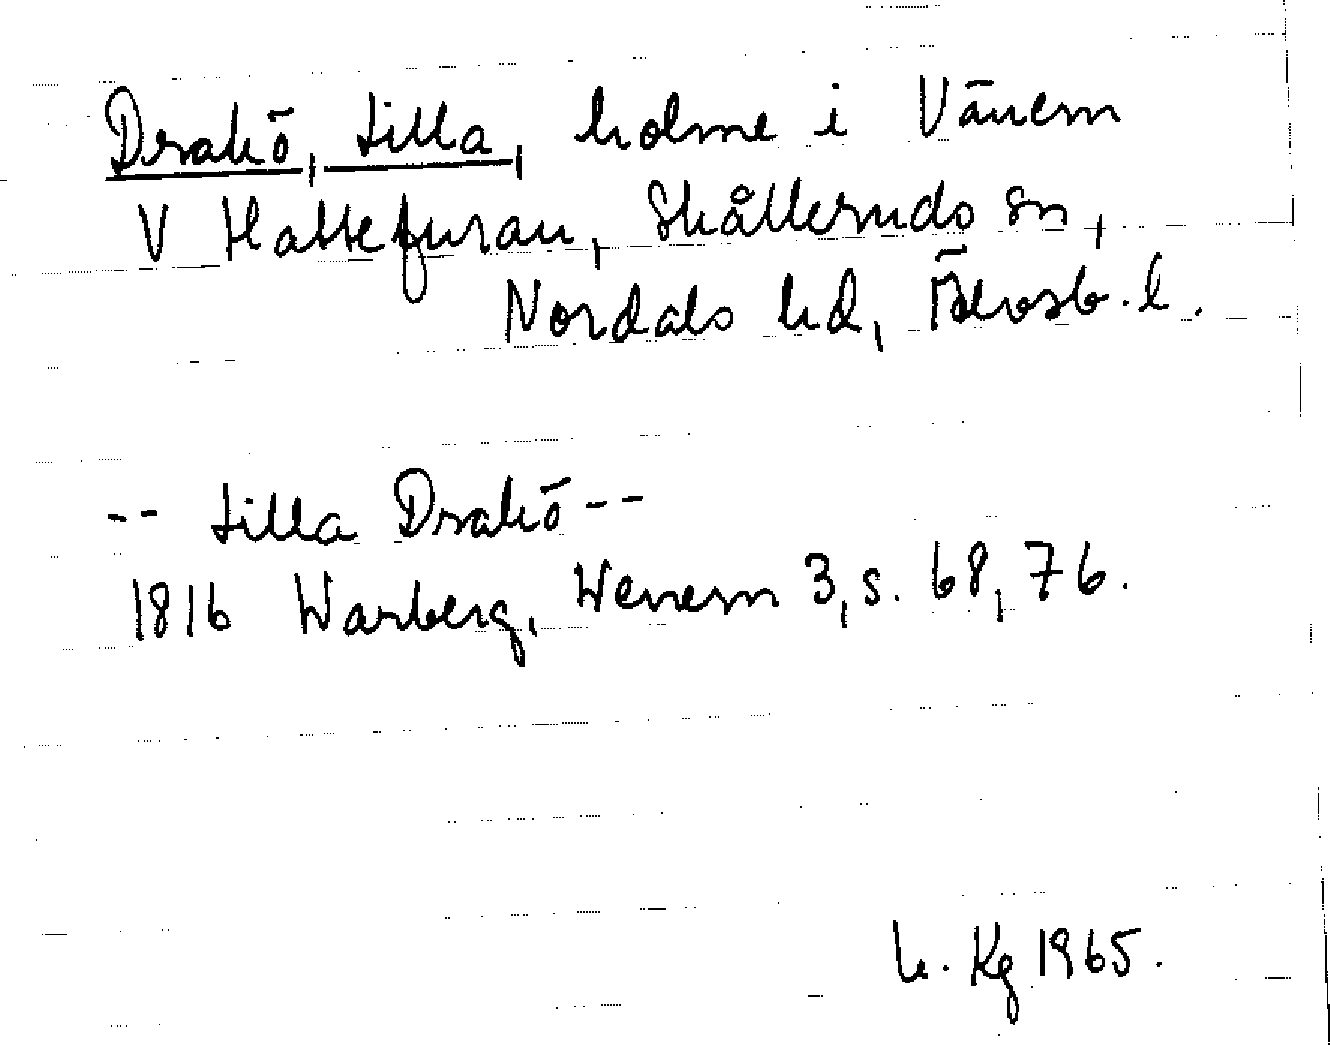 Drakö, Lilla, holme i Vänern
V Hattefuran, Skålleruds sn,
Nordals hd, Älvsb. l.
-- Lilla Drakö --
1816 Warberg, Wenern 3, s. 68, 76.
L. Kg 1965.